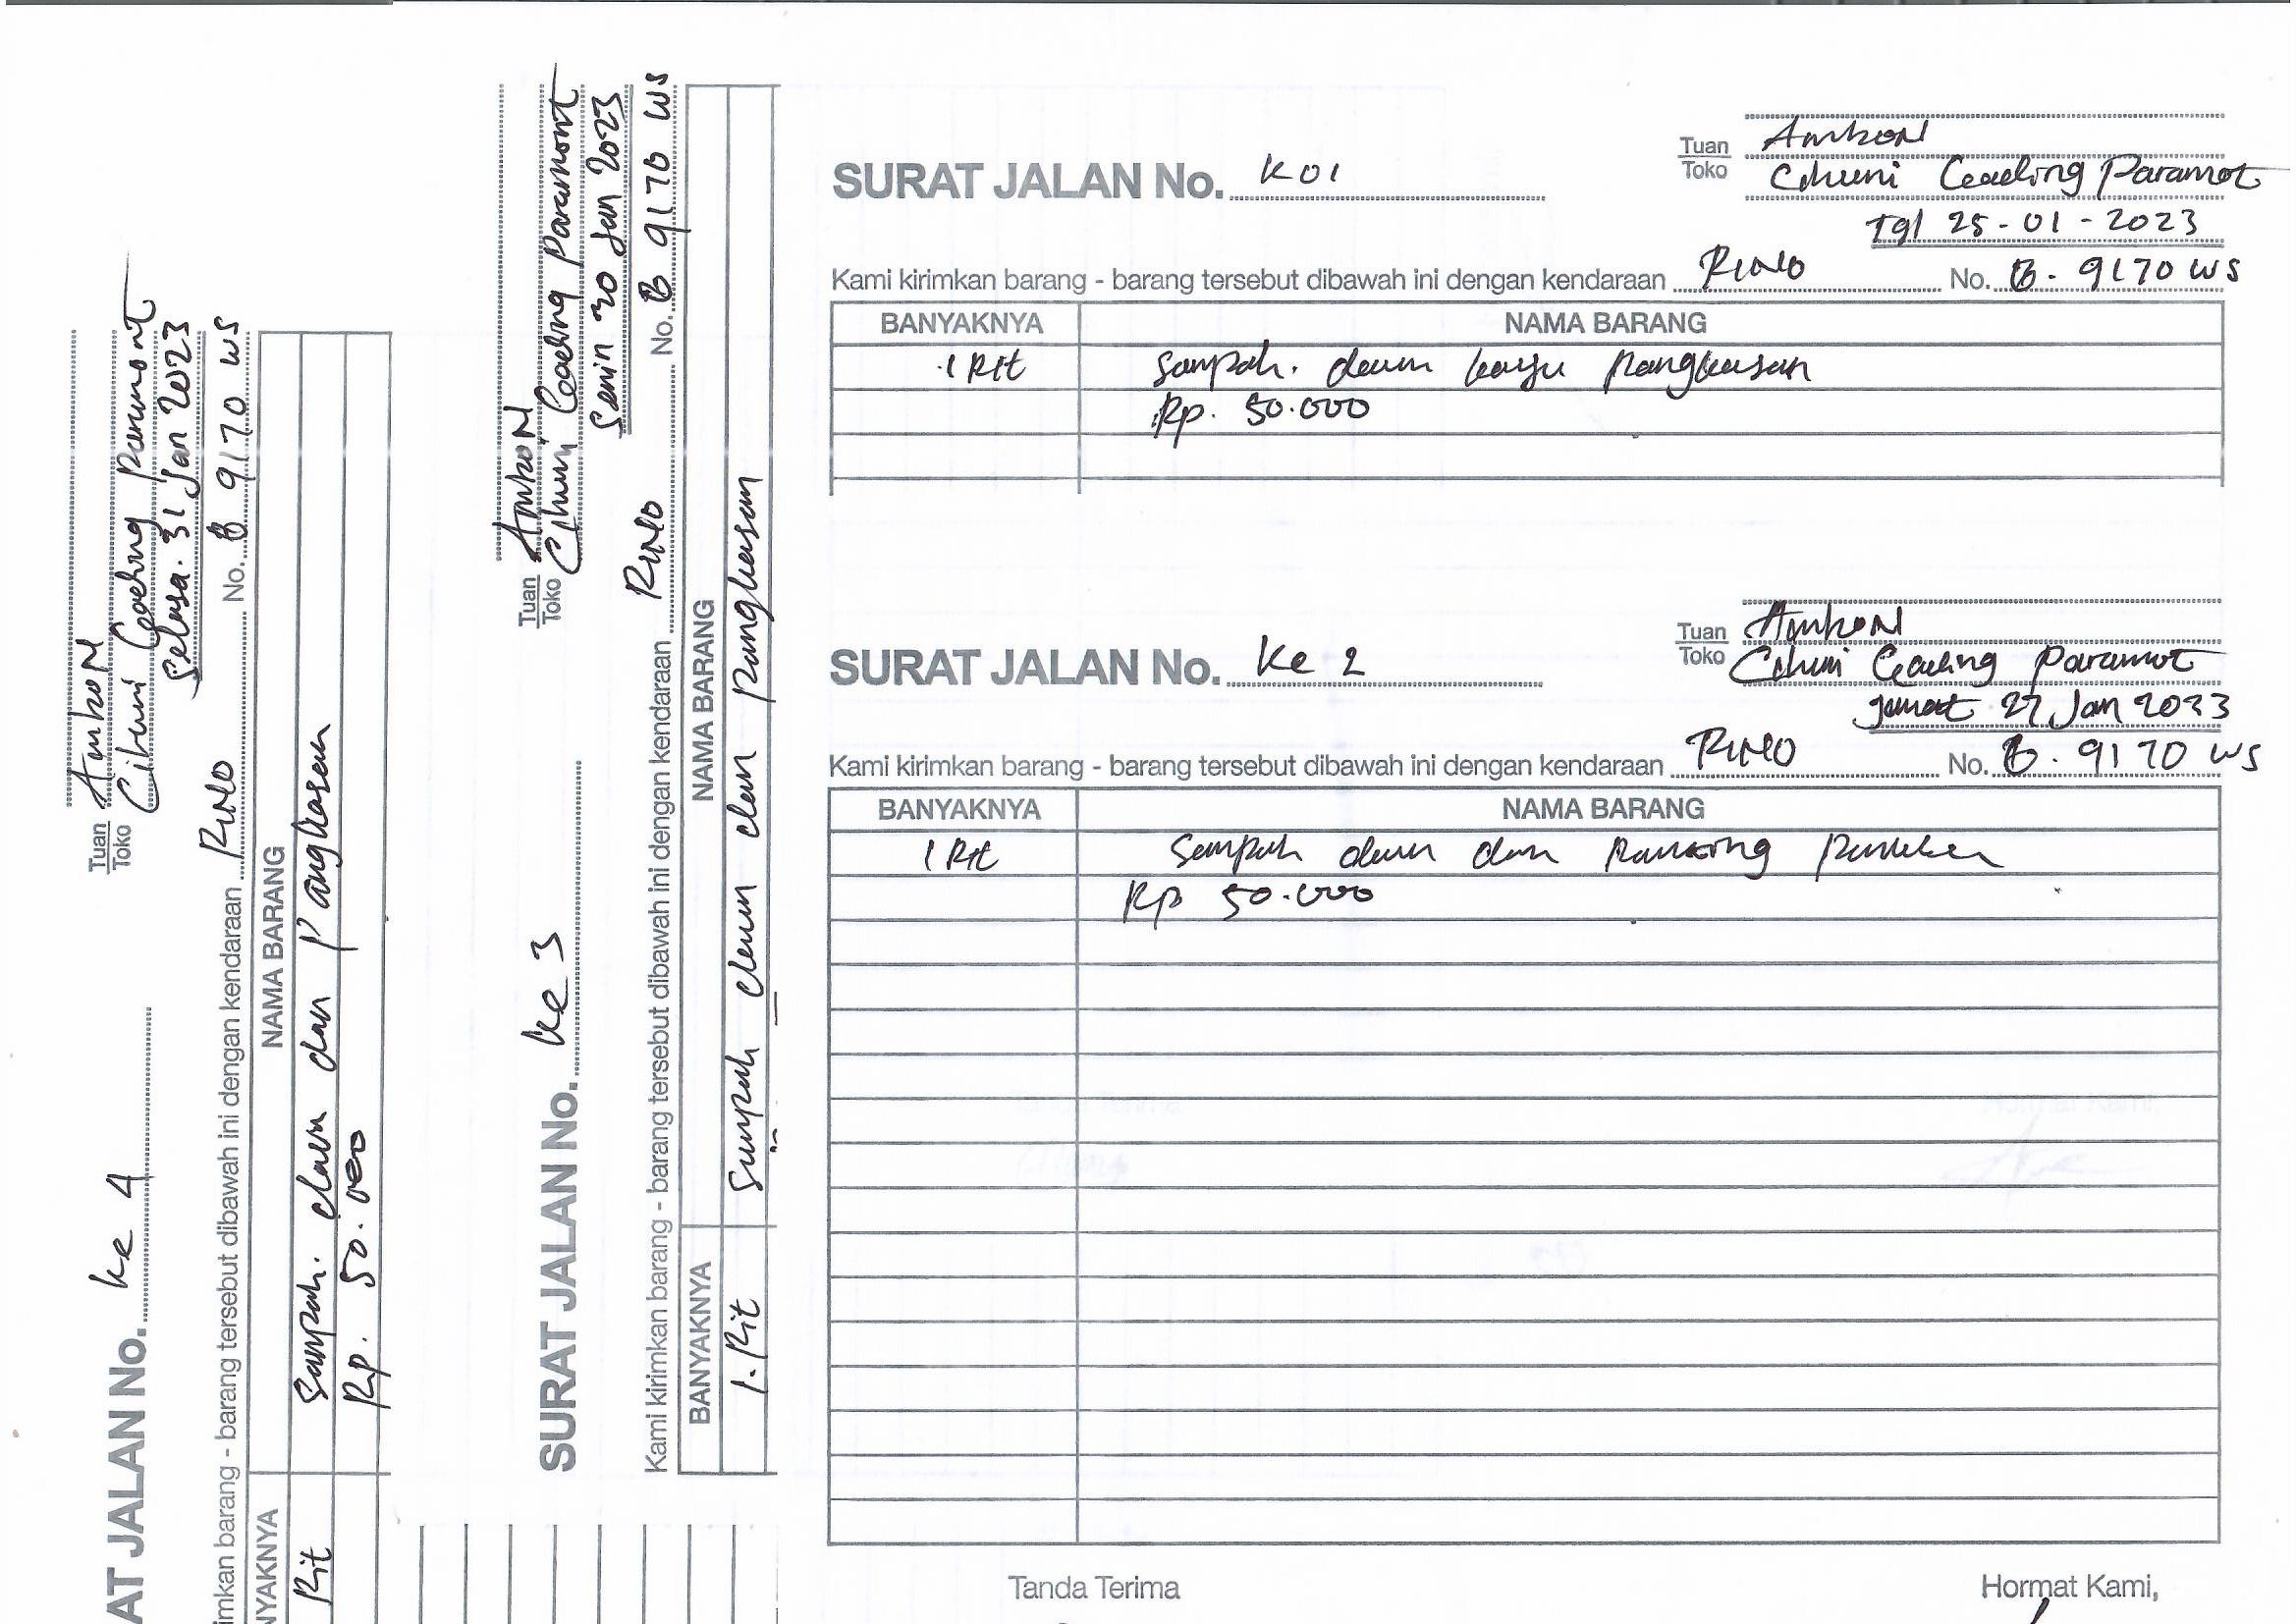 SURAT JALAN No. K01
Tuan
Toko
AmkoN
Cihuni Gading Paramot
Tgl 25-01-2023
Kami kirimkan barang - barang tersebut dibawah ini dengan kendaraan RINO No. B. 9170 WS
BANYAKNYA NAMA BARANG
1 Rit Sampah. daun kayu Pangkasan
Rp. 50.000
SURAT JALAN No. Ke 2
Tuan
Toko
AmkoN
Cihuni Gading Paramot
Jumat 27 Jan 2023
Kami kirimkan barang - barang tersebut dibawah ini dengan kendaraan RINO No. B. 9170 WS
BANYAKNYA NAMA BARANG
1 Rit Sampah daun dan Ranting
Rp 50.000
Tanda Terima Hormat Kami,
SURAT JALAN No. ke 3
Tuan
Toko
AmkoN
Cihuni Gading Paramont
Senin 30 Jan 2023
Kami kirimkan barang - barang tersebut dibawah ini dengan kendaraan RINO No. B 9170 WS
BANYAKNYA NAMA BARANG
1. Rit Sampah daun dan Pangkasan
AT JALAN No. ke 4
Tuan
Toko
AmkoN
Cihuni Gading Paramont
Selasa. 31 Jan 2023
imkan barang - barang tersebut dibawah ini dengan kendaraan RINO No. B 9170 WS
NYAKNYA NAMA BARANG
Rit Sampah. daun dan Pangkasan
Rp. 50.000